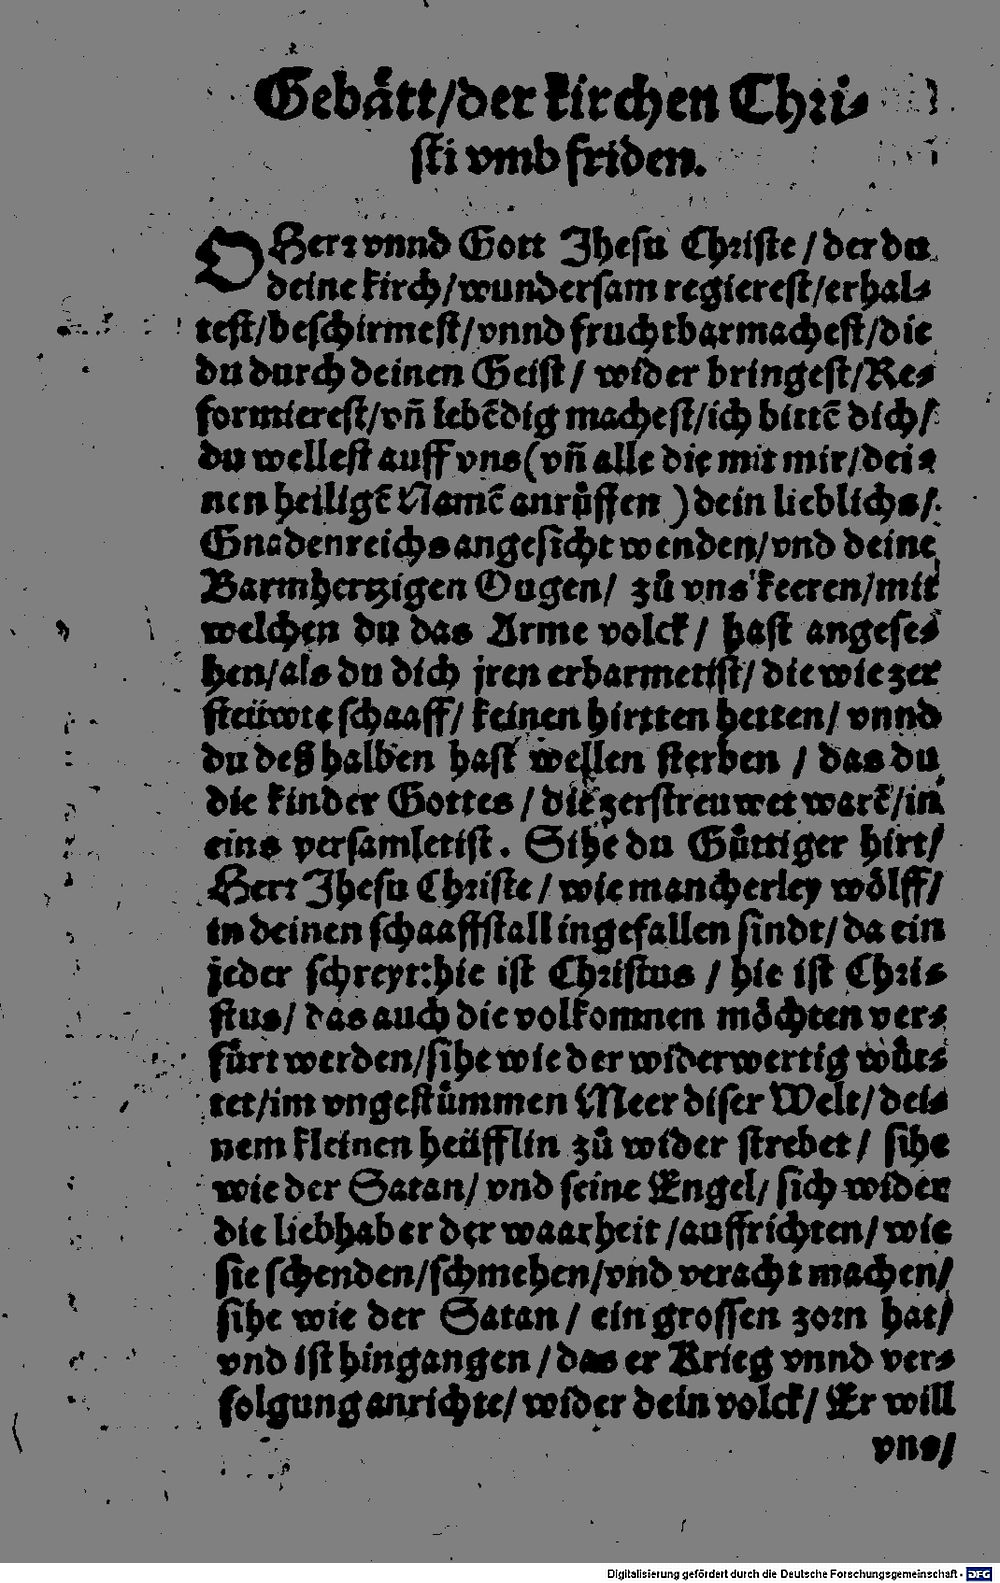 Gebaͤtt/der kirchen Chri⸗
sti vmb friden.
O Herr vnnd Gott Jhesu Christe / der du
deine kirch/wundersam regierest/erhal⸗
test/beschirmest/vnnd fruchtbarmachest/die
du durch deinen Geist / wider bringest/Re⸗
formierest/vn̄ lebēdig machest/ich bittē dich/
du wellest auff vns(vn̄ alle die mit mir/dei⸗
nen heiligē Namē anruͤffen ) dein lieblichs/
Gnadenreichs angesicht wenden/vnd deine
Barmhertzigen Ougen / zuͦ vns keeren/mit
welchen du das Arme volck / hast angese⸗
hen/als du dich jren erbarmetist/ die wie zer
steüwte schaaff/ keinen hirtten hetten/ vnnd
du deßhalben hast wellen sterben / das du
die kinder Gottes / die zerstreuwet warē/in
eins versamletist. Sihe du Guͤttiger hirt/
Herr Jhesu Christe / wie mancherley woͤlff/
in deinen schaaffstall ingefallen sindt/ da ein
jeder schreyt:hie ist Christus / hie ist Chri⸗
stus/ das auch die volkomnen moͤchten ver⸗
fuͤrt werden/sihe wie der widerwertig wuͤt⸗
tet/im vngestuͤmmen Meer diser Welt/ dei⸗
nem kleinen heüfflin zuͦ wider strebet / sihe
wie der Satan/ vnd seine Engel/ sich wider
die liebhaber der waarheit /auffrichten/ wie
sie schenden/schmehen/vnd veracht machen/
sihe wie der Satan / ein grossen zorn hat/
vnd ist hingangen /das er Krieg vnnd ver⸗
folgung anrichte/ wider dein volck/ Er will
vns/
Digitalisierung gefördert durch die Deutsche Forschungsgemeinschaft - DFG